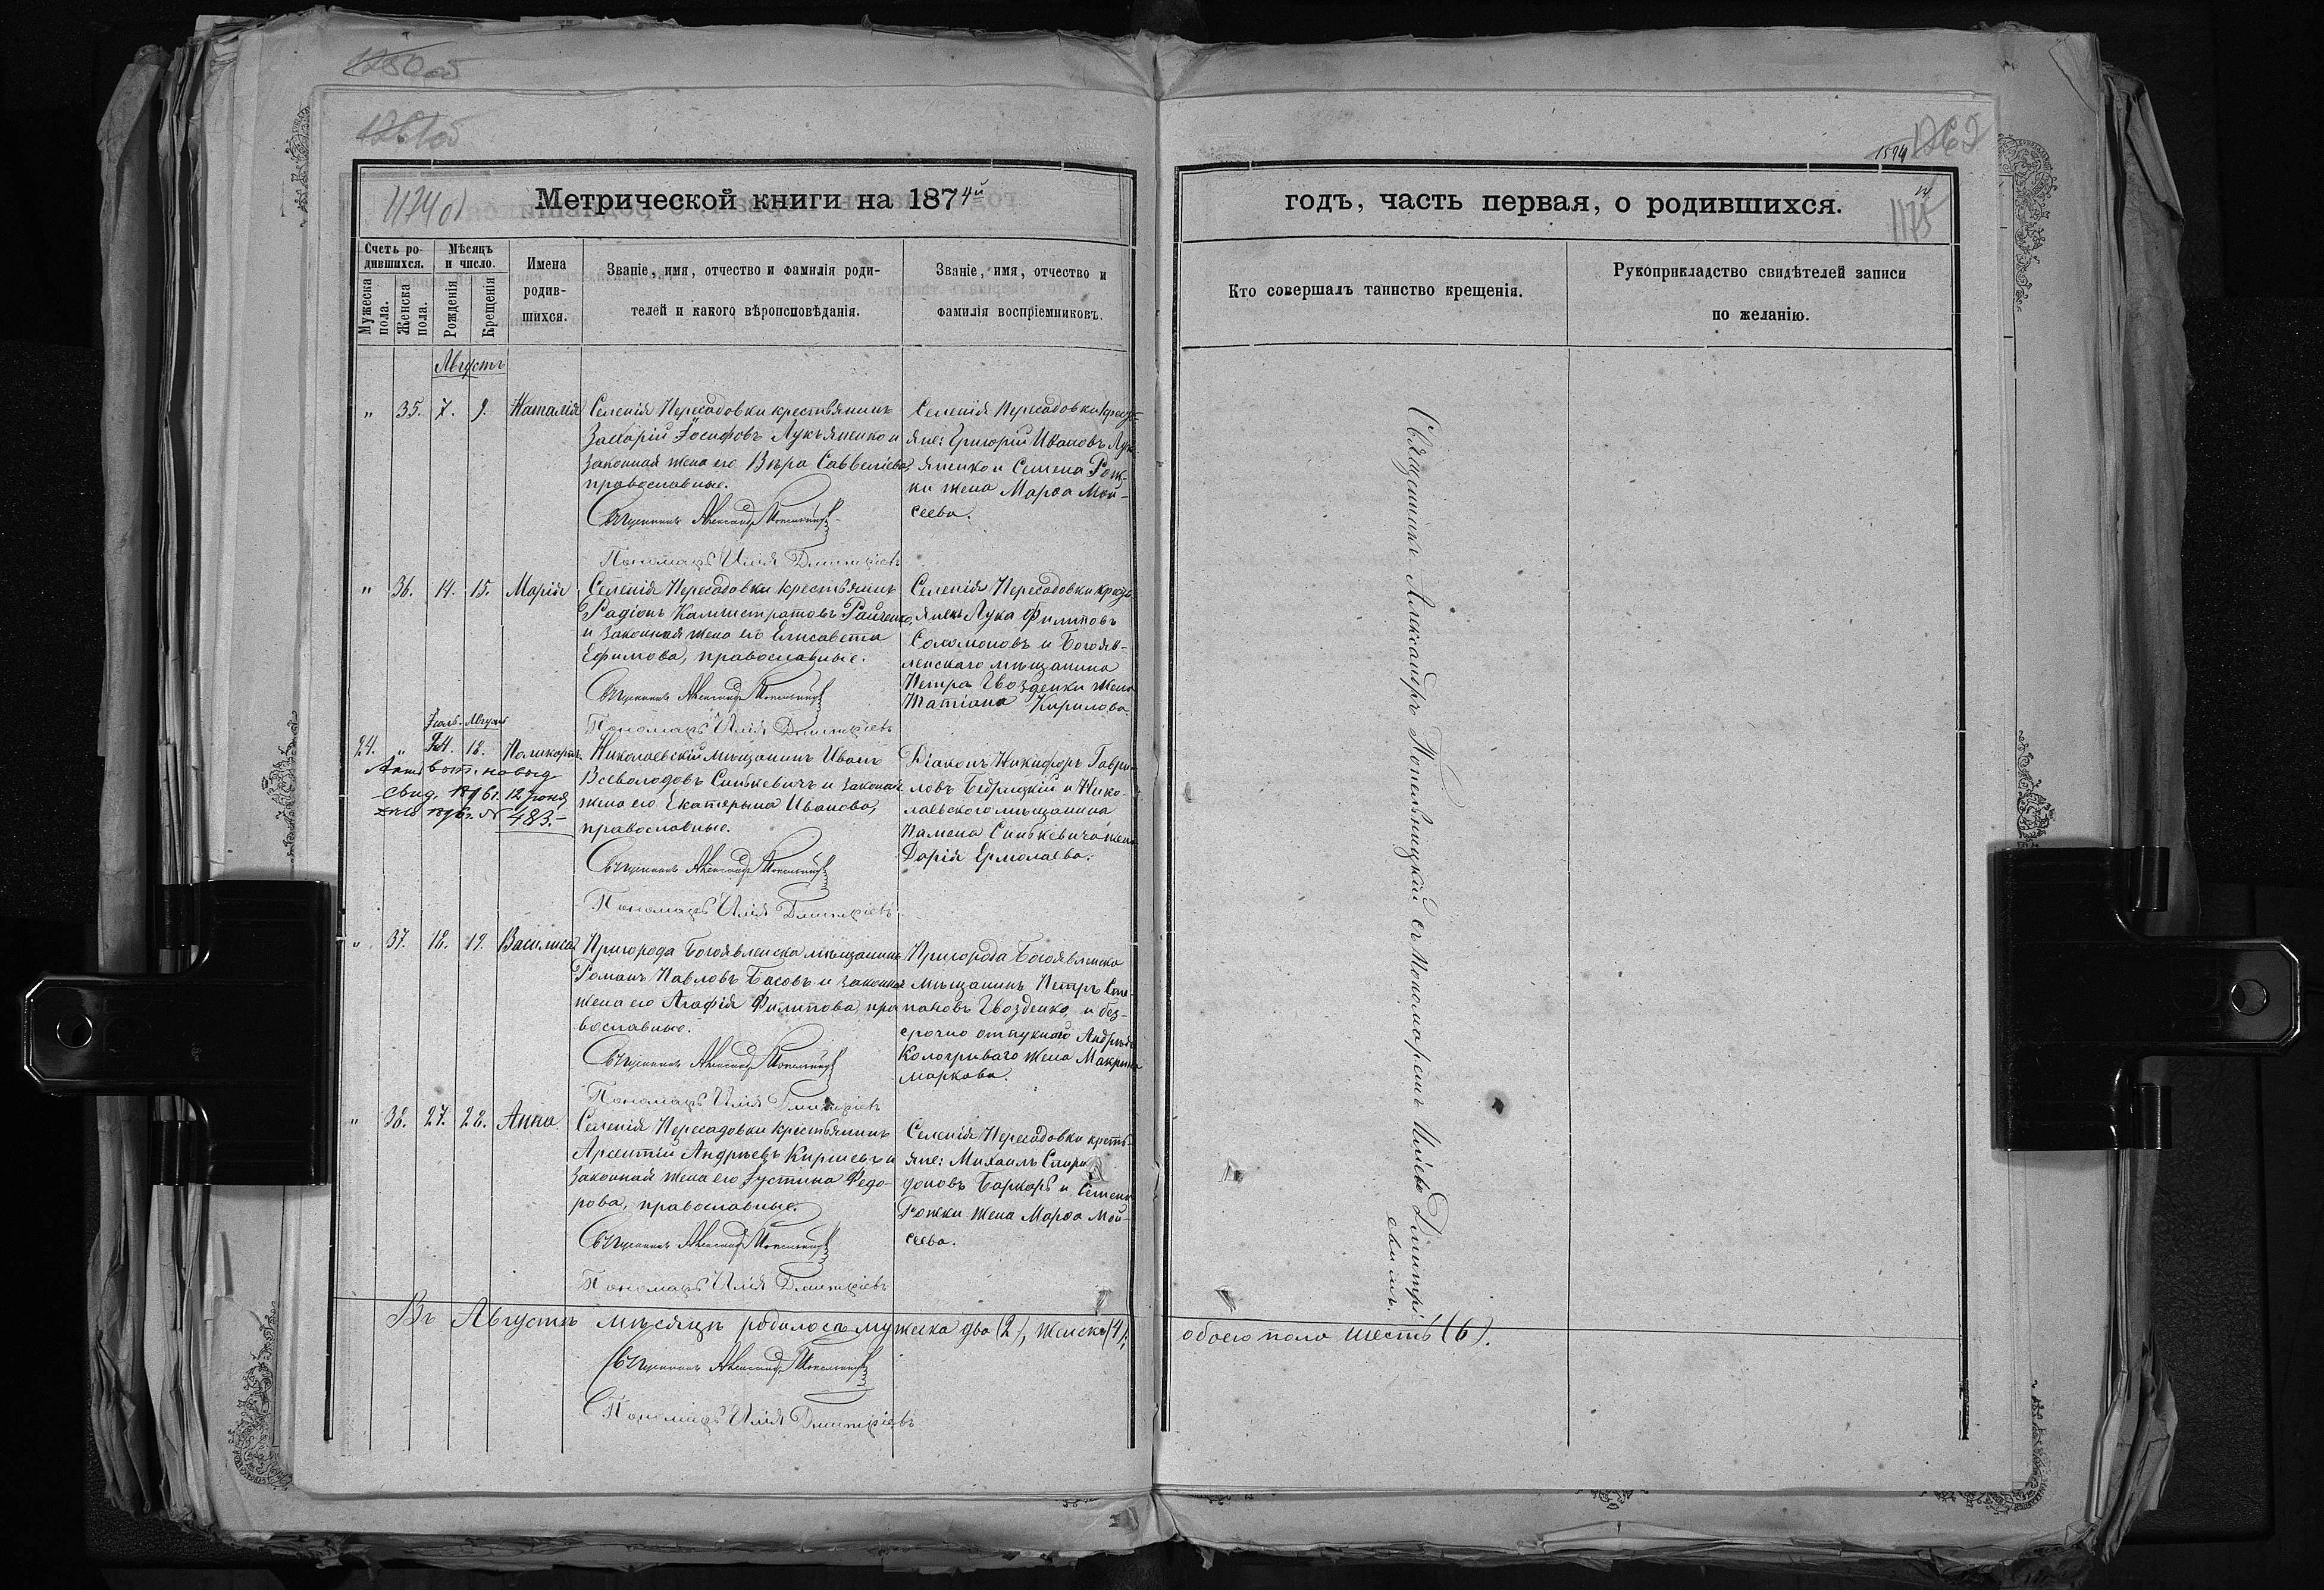 1250 об
1261 об
1594 1262
1174 об
Метрической книги на 1874й
годъ, часть первая, о родившихся.
1175
Счетъ родившихся.
Мѣсяцъ и число.
Имена родив-
шихся.
Званіе, имя, отчество и фамилія роди-
телей и какого вѣроисповѣданія.
Званіе, имя, отчество и
фамилія воспріемниковъ.
Мужеска пола.
Женска пола.
Рожденія
Крещенія
Кто совершалъ таинство крещенія.
Рукоприкладство свидѣтелей записи
по желанію.
Августъ
" 35. 7. 9. Наталія
Селенія Пересадовки крестьянинъ
Захарій Іосифовъ Лукьяненко и
законная жена его Вѣра Саввеліева,
православные.
Священникъ Александръ Попельницкій
Пономарь Илія Дмитріевъ
Селенія Пересадовки кресть-
яне: Григорій Ивановъ Лукь-
яненко и Семена Рож-
ки жена Марѳа Мой-
сеева.
" 36. 14. 15. Марія
Селенія Пересадовки крестьянинъ
Радіонъ Каллистратовъ Райченко,
и законная жена его Елисавета
Ефимова, православные.
Священникъ Александръ Попельницкій
Пономарь Илія Дмитріевъ
Селенія Пересадовки кресть-
янинъ Лука Филиповъ
Соломоновъ и Богояв-
ленскаго мѣщанина
Петра Гвозденки жена
Татіана Кирилова.
Іюль. Августъ
24. " 24. 18. Поликарпъ.
выд.
свид. 1896 г. 12 Іюня
1896 г. № 483.
Николаевскій мѣщанинъ Иванъ
Всеволодовъ Синькевичъ и законная
жена его Екатерина Иванова,
православные.
Священникъ Александръ Попельницкій
Пономарь Илія Дмитріевъ
Діаконъ Никифоръ Гаври-
ловъ Бедрицкій и Нико-
лаевского мѣщанина
Памена Синькевича жена
Дарія Ермолаева.
" 37. 18. 19. Василиса
Пригорода Богоявленска мѣщанинъ
Романъ Павловъ Басовъ и законная
жена его Агафія Филипова, пра-
вославные.
Священникъ Александръ Попельницкій
Пономарь Илія Дмитріевъ
Пригорода Богоявленска
мѣщанинъ Петръ Сте-
пановъ Гвозденко, и без-
срочно отпускного Андрея
Кологриваго жена Макрина
Маркова.
" 38. 27. 28. Анна.
Селенія Пересадовки крестьянинъ
Арсентій Андреевъ Киршевъ и
законная жена его Іустина Федо-
рова, православные.
Священникъ Александръ Попельницкій
Пономарь Илія Дмитріевъ
Селенія Пересадовки кресть-
яне: Михаилъ Спири-
доновъ Баркарь и Семена
Рожки жена Марѳа Мой-
сеева.
Священникъ Александръ Попельницкій съ Пономаремъ Иліею Дмитрі-
евымъ.
Въ Августѣ мѣсяцѣ родилось мужеска два (2), женска (4),
обоего пола шесть (6).
Священникъ Александръ Попельницкій
Пономарь Илія Дмитріевъ